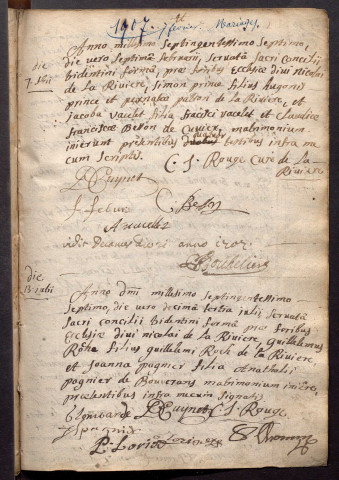 1707. 7 fevrier. Mariages
Anno millesimo septingentesimo septimo,
die 7. Februarii
die vero septima februarii, servatâ sacri concilii
tridentini formâ, prae foribus Ecclesiae divi nicolai
de La Riviere, simon prince filius hugonis
prince et pernatea patron de la Riviere, et
jacoba vaelet filia francisci vaelet et Claudiae
franciscae Beson de Cuvier, matrimonium
inierunt praesentibus quatuor testibus infra me
cum scriptis.
C. S. Rouge Curé de La
Riviere
P. Cuynet
f. febur C. Beson
A vaelet
vidit anno 1707.
die
13 julii
Anno dni millesimo septingentesimo
septimo, die vero decimâ tertiâ julii, servatâ
sacri concilii tridentini formâ prae foribus
Ecclesiae divi nicolai de la Riviere, guillelmus
Roche filius guillelmi Roch de la Riviere
et joanna pagnier filia Anathalii
pagnier de Bouverans matrimonium iniere,
praesentibus infra mecum signatis
P. Cuynet C. S. Rouge,
P. Loriot